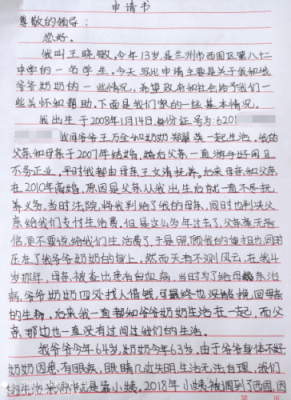 申请书
尊敬的领导:
您好。
我叫王晓敏,今年13岁,是兰州市西固区第八十二
中学的一名学生,今天写此申请主要是关于我和我
爷爷奶奶的一些情况,希望政府和社会给予我们一
些关怀和帮助,下面是我们家的一些基本情况。
我出生于2008年1月14日,身份证号为6201
我同爷爷王万全和奶奶郑翠英一起生活,我的
父亲和母亲于2007年结婚,婚后父亲一直游手好闲且
不务正业,平时我都由母亲王文清抚养。后来母亲和父亲
在2010年离婚,原因是父亲从我出生后就一直不尽抚
养义务,当时法院将我判给了我的母亲,同时也判决父
亲给我们支付生活费,但是这么多年过去了,父亲毫无音
信,更不要说给我们生活费了,于是照顾我的重担也同时
压在了我爷爷奶奶的身上,然而天有不测风云,在我4
岁那年,母亲被查出患有白血病,当时为了给母亲治
病,爷爷奶奶四处找人借钱,可最终也没能挽回母亲
的生命,后来我一直都和爷爷奶奶生活在一起,而父
亲那边也一直没有过问过我们的生活。
我爷爷今年64岁,奶奶今年63岁,由于爷爷身体不好
奶奶因患有眼疾,眼睛几近失明生活无法自理,我们
的生活来源就是靠小姨,2018年小姨被调到了西固,因